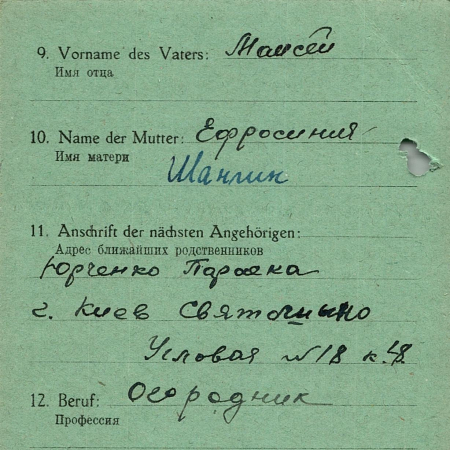 9. Vorname des Vaters: Маисей
Имя отца
10. Name der Mutter: Ефросиния
Имя матери
Шанлин
11. Anschrift der nächsten Angehörigen:
Адрес ближайших родственников
Юрченко
г. Киев Святошино
Угловая №18 к. 48
12. Beruf: Осородник
Профессия